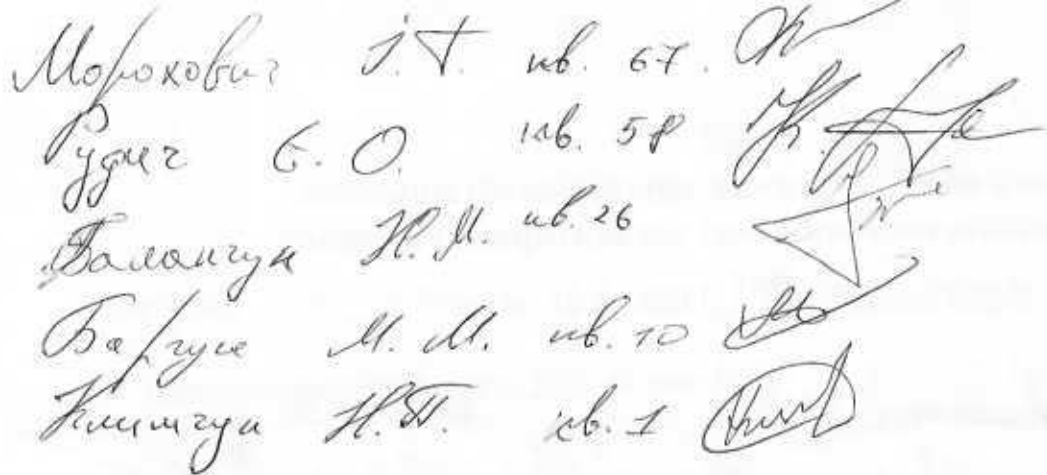 Морохович І. Т. кв. 67.
Рудич Є. О. кв. 58
Баланчук Н. М. кв. 26
М. М. кв. 10
Климчук Н. П. кв. 1